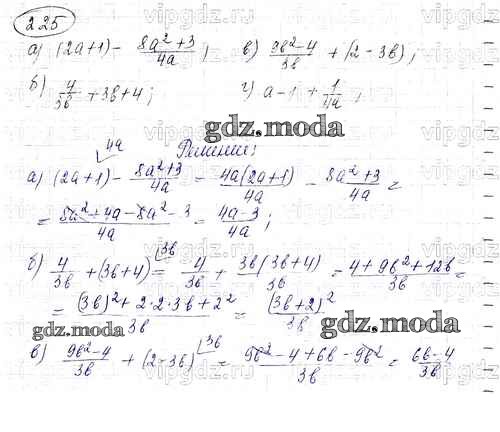 225
а) (2a+1) - 8a²+3/4a ; в) 9b²-4/3b + (2-3b);
б) 4/3b + 3b+4; г) a-1 + 1/4a ;
gdz.moda
Решение:
4a
а) (2a+1) - 8a²+3/4a = 4a(2a+1)/4a - 8a²+3/4a =
= 8a²+4a-8a²-3/4a = 4a-3/4a ;
б) 4/3b + (3b+4) 3b = 4/3b + 3b(3b+4)/3b = 4+9b²+12b/3b =
= (3b)²+2·2·3b+2²/3b = (3b+2)²/3b
gdz.moda
gdz.moda
в) 9b²-4/3b + (2-3b) 3b = 9b²-4+6b-9b²/3b = 6b-4/3b